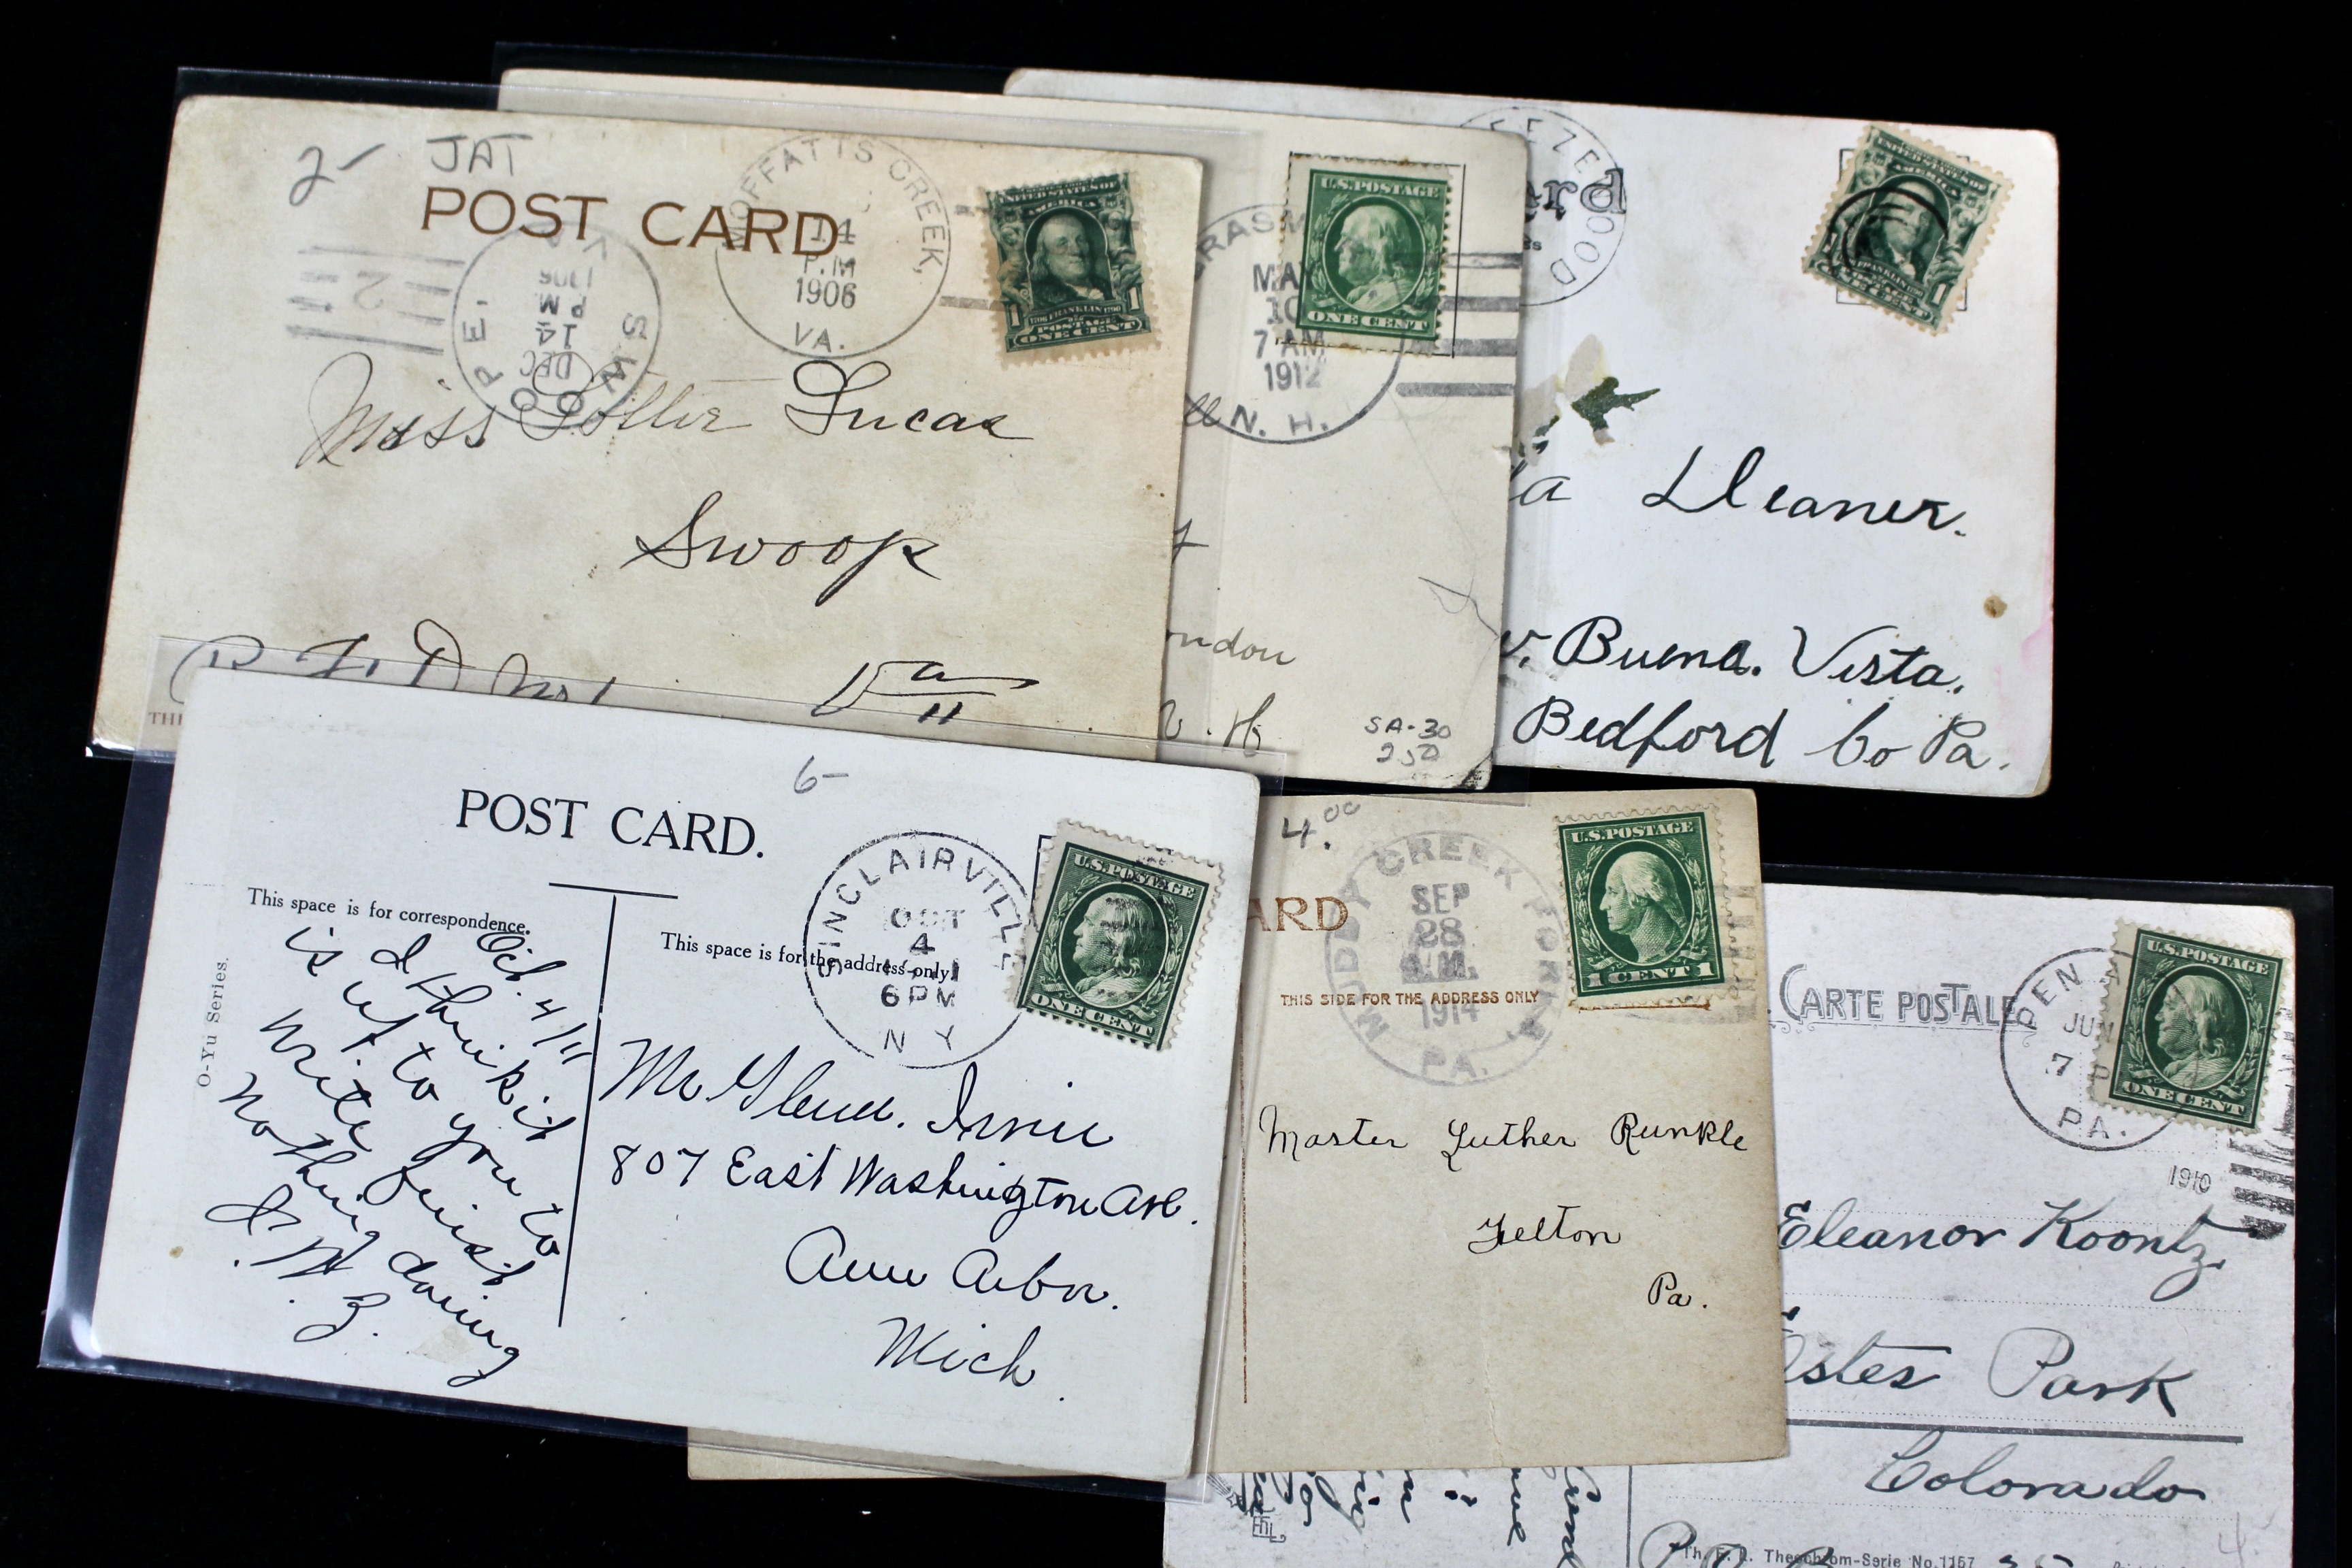 2-
JAT
POST CARD
MOFFATTS CREEK,
14
P.M
1906
VA.
2
SWOOPE.
VA
DEC
14
P M
1906
UNITED STATES OF
AMERICA
1 FRANKLIN 1
POSTAGE
ONE CENT
Miss Lottie Lucas
Swoop
R F D No 1
Va
11
THI
ERASM
MAY
10
7 AM
1912
N. H.
U.S. POSTAGE
ONE CENT
ll
y
ondon
N. H
SA-30
250
EEZEWOOD
ard
UNITED STATES OF
AMERICA
FRANKLIN
1
a Lleaner.
v. Buena. Vista.
Bedford Co Pa.
6-
POST CARD.
This space is for correspondence.
This space is for the address only.
O-Yu Series.
SINCLAIRVILLE
OCT
4
6 PM
N Y
U.S. POSTAGE
ONE CENT
Oct. 4/11
I think it
is up to you to
write first
nothing doing
Mr Glenn. Irvie
807 East Washington Ave.
Ann Arbor.
Mich.
4.00
ARD
MUDDY CREEK FORKS
SEP
28
A.M.
1914
PA.
U.S. POSTAGE
1 CENT 1
THIS SIDE FOR THE ADDRESS ONLY
Master Luther Runkle
Felton
Pa.
CARTE POSTALE
PEN
JUN
7
P
PA.
1910
U.S. POSTAGE
ONE CENT
Eleanor Koontz
Estes Park
Colorado
Th. E. L. Theochrom-Serie No. 1157
4